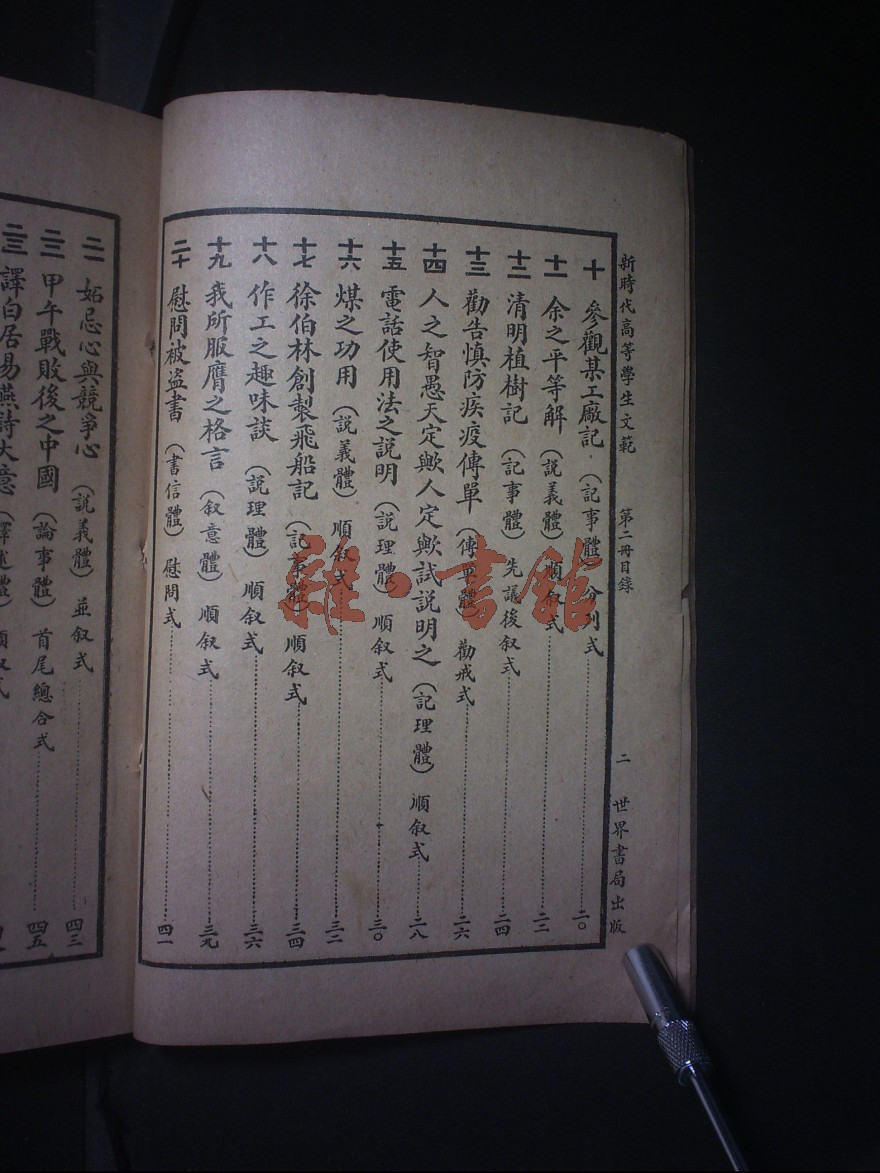 新時代高等學生文範 第二冊目錄 二 世界書局出版
十 參觀某工廠記 (記事體) 分列式 二〇
十一 余之平等解 (說義體) 順叙式 二二
十二 清明植樹記 (記事體) 先議後叙式 二四
十三 勸告慎防疾疫傳單 (傳單體) 勸戒式 二六
十四 人之智愚天定歟人定歟試說明之 (記理體) 順叙式 二八
十五 電話使用法之說明 (說理體) 順叙式 三〇
十六 煤之功用 (說義體) 順叙式 三二
十七 徐伯林創製飛船記 (記事體) 順叙式 三四
十八 作工之趣味談 (說理體) 順叙式 三六
十九 我所服膺之格言 (叙意體) 順叙式 三九
二十 慰問被盜書 (書信體) 慰問式 四一
二一 妬忌心與競爭心 (說義體) 並叙式 四三
二二 甲午戰敗後之中國 (論事體) 首尾總合式 四五
二三 譯白居易燕詩大意 (譯述體) 順叙式
雜·書館